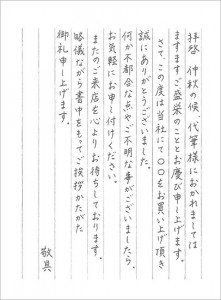 拝啓 仲秋の候、代筆様におかれましては
ますますご盛栄のこととお慶び申し上げます。
さて、この度は当社にて〇〇をお買い上げ頂き
誠にありがとうございました。
何か不都合な点やご不明な事がございましたら、
お気軽にお申し付けください。
またのご来店を心よりお待ちしております。
略儀ながら書中をもってご挨拶かたがた
御礼申し上げます。
敬具